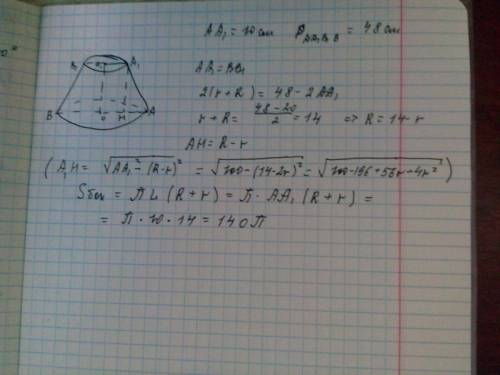 AA₁ = 10 см P_AA₁B₁B = 48 см
B₁ O₁ A₁
B O H A
AA₁ = BB₁
2(r + R) = 48 - 2AA₁
r + R = (48 - 20)/2 = 14 => R = 14 - r
AH = R - r
( A₁H = √(AA₁² - (R-r)²) = √(100 - (14-2r)²) = √(100 - 196 + 56r + 4r²) )
Sбок = ПL (R + r) = П · AA₁ (R + r) =
= П · 10 · 14 = 140П